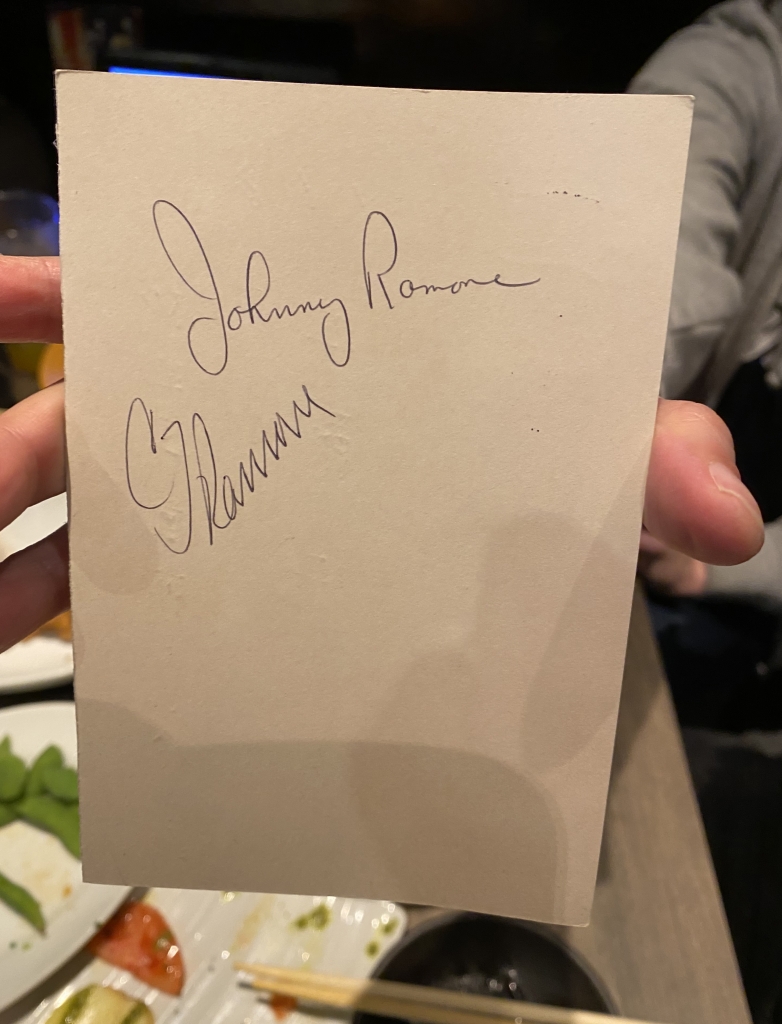 Johnny Ramone
CJ Ramone